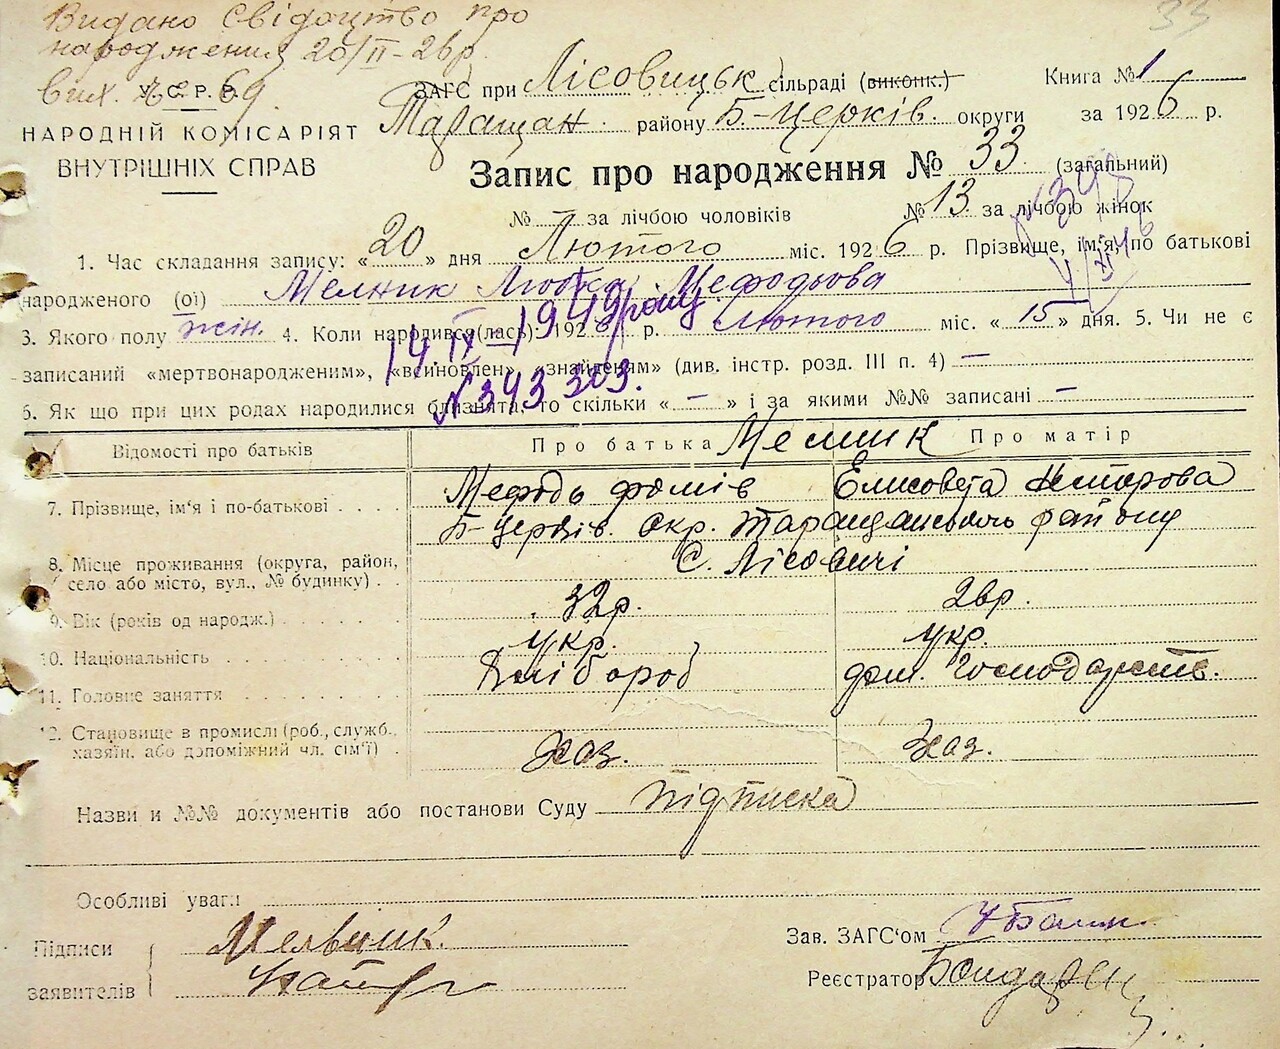 33
Видано Свідоцтво про
народження 20/II-26р.
вих. № 69.
У. С. Р. Р.
НАРОДНІЙ КОМІСАРІЯТ
ВНУТРІШНІХ СПРАВ
ЗАГС при Лісовицьк сільраді (виконк.) Книга № 1
Таращан. району Б.-Церків. округи за 1926 р.
Запис про народження № 33 (загальний)
№ за лічбою чоловіків № 13. за лічбою жінок
1. Час складання запису: «20» дня Лютого міс. 1926 р. Прізвище, ім'я, по батькові
народженого (ої) Мелник Любка Мефодьова
3. Якого полу жін. 4. Коли народився(лась): 1926 р. Лютого міс. «15» дня. 5. Чи не є
14.IX-1949 року
записаний «мертвонародженим», «всиновлен», «знайденям» (див. інстр. розд. III п. 4) —
N 343303.
6. Як що при цих родах народилися близнята, то скільки «—» і за якими №№ записані —
Відомості про батьків Про батька Мелник Про матір
7. Прізвище, ім'я і по-батькові Мефодь Фомів Елисовета Несторова
8. Місце проживання (округа, район, Б-Церків. окр. Таращанського району
село або місто, вул., № будинку) С. Лісовичі
9. Вік (років од народж.) 32р. 26р.
10. Національність укр. укр.
11. Головне заняття Хлібороб дом. Господарств.
12. Становище в промислі (роб., служб.,
хазяїн. або допоміжний чл. сім'ї) Хаз. Хаз.
Назви и №№ документів або постанови Суду Підписка
Особливі уваги
Підписи Мельник.
заявителів
Зав. ЗАГС'ом
Реєстратор